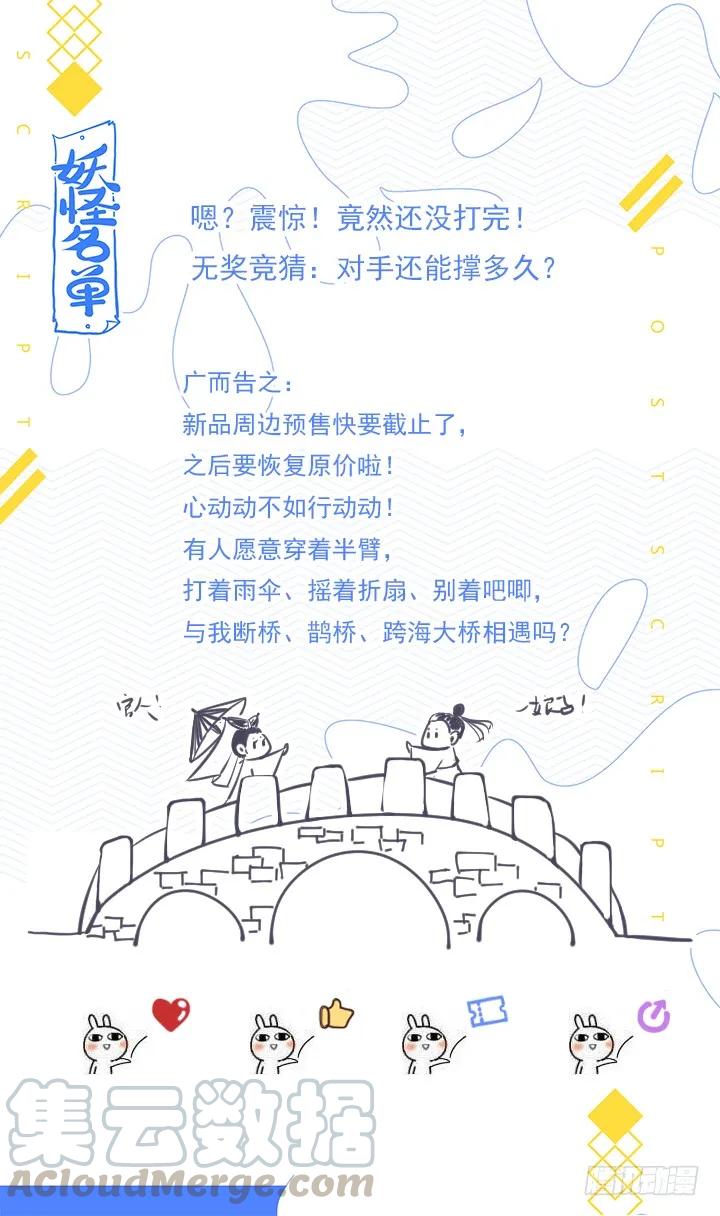 SCRIPT
妖怪名单
嗯？震惊！竟然还没打完！
无奖竞猜：对手还能撑多久？
POSTSCRIPT
广而告之：
新品周边预售快要截止了，
之后要恢复原价啦！
心动动不如行动动！
有人愿意穿着半臂，
打着雨伞、摇着折扇、别着吧唧，
与我断桥、鹊桥、跨海大桥相遇吗？
官人！
娘子！
集云数据
aCloudMerge.com
腾讯动漫